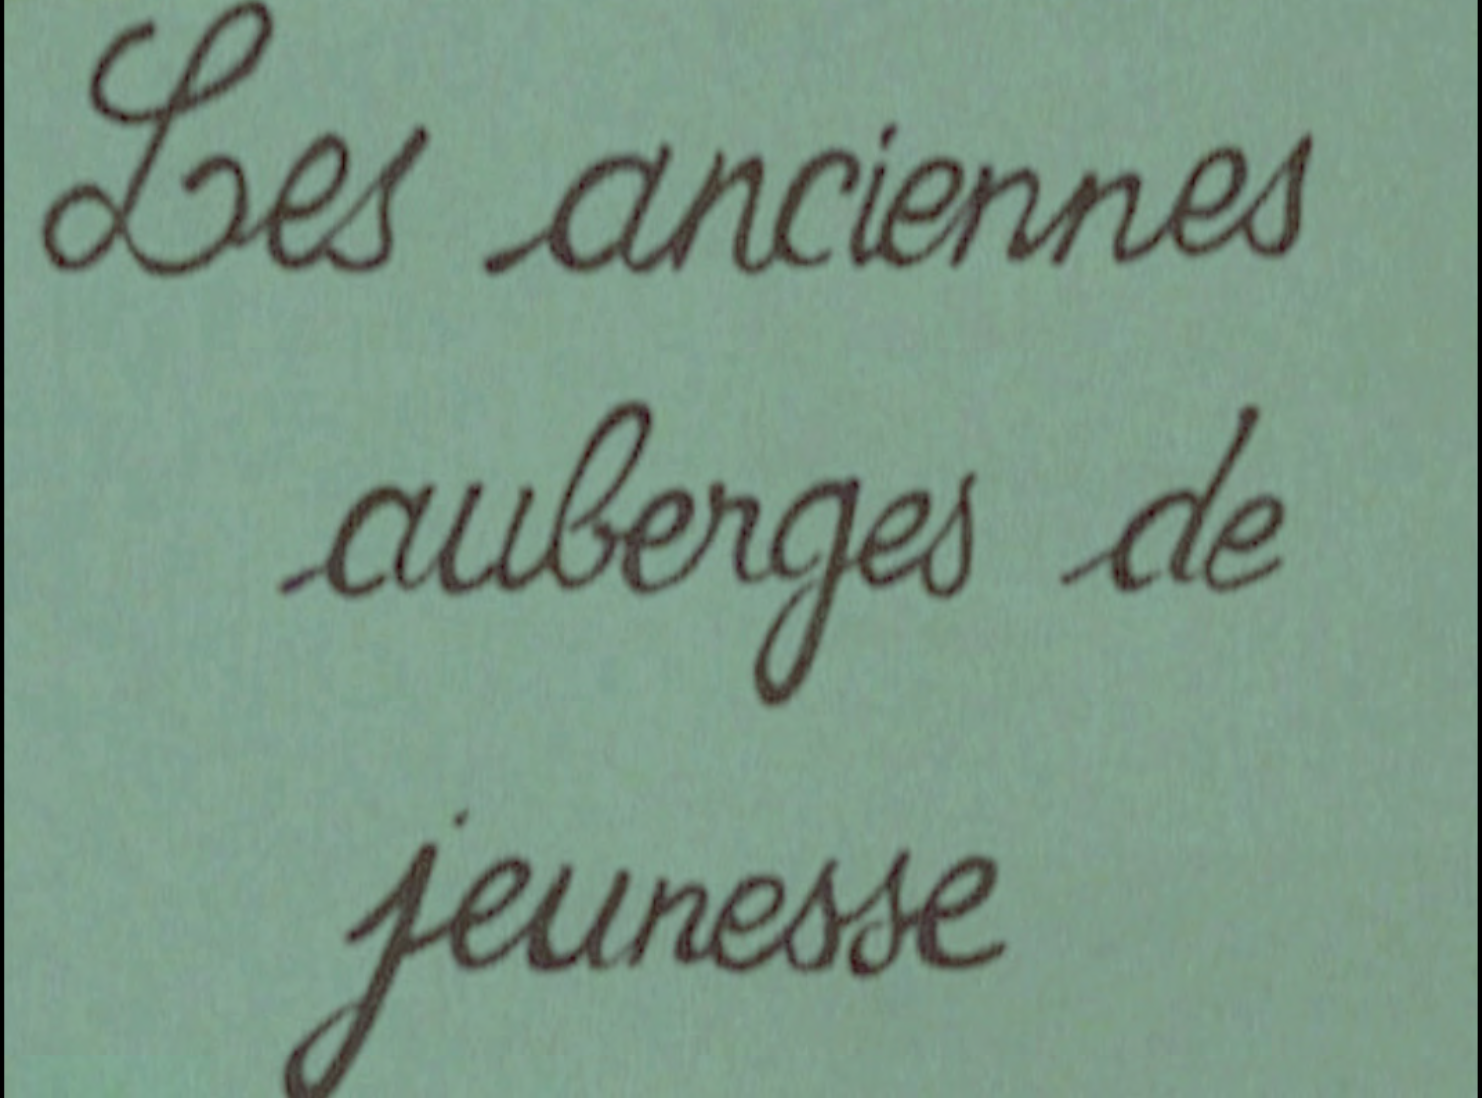 Les anciennes
auberges de
jeunesse